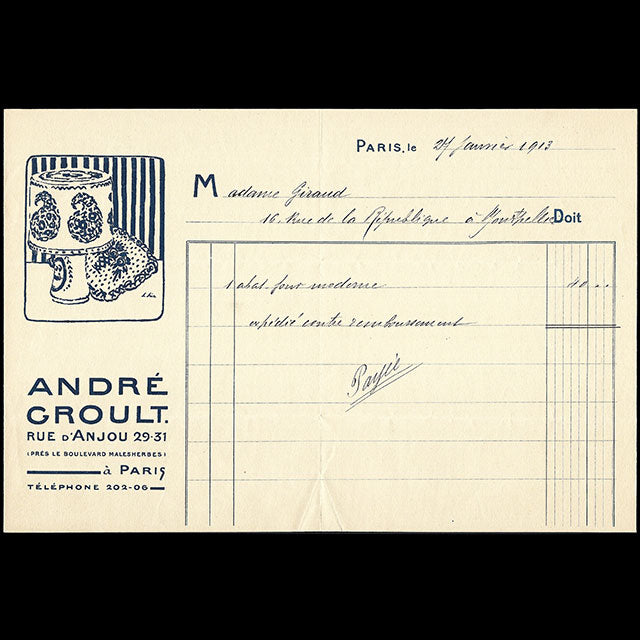 PARIS, le 27 Janvier 1913
Madame Giraud
16 Rue de la République à Montpellier Doit
1 abat-jour moderne 40
expédié contre remboursement
Payé
ANDRÉ
GROULT.
RUE D'ANJOU 29-31
(PRÈS LE BOULEVARD MALESHERBES)
à PARIS
TÉLÉPHONE 202-06